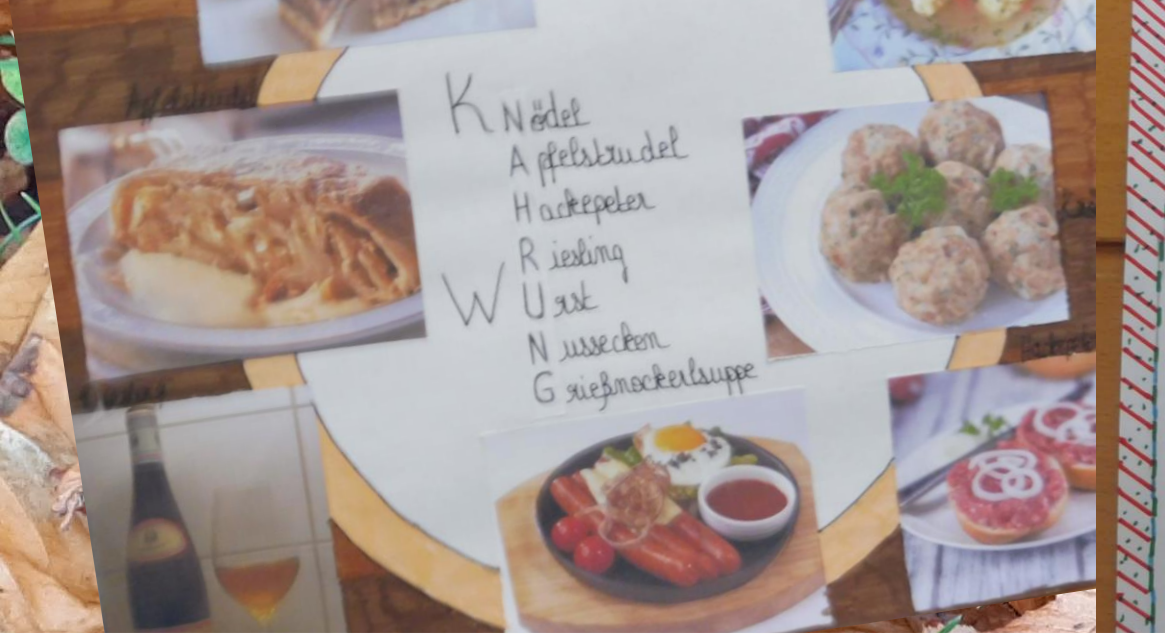 Apfelstrudel
K Nödel
Apfelstrudel
Hackepeter
Riesling
W Urst
Nussecken
Grießnockerlsuppe